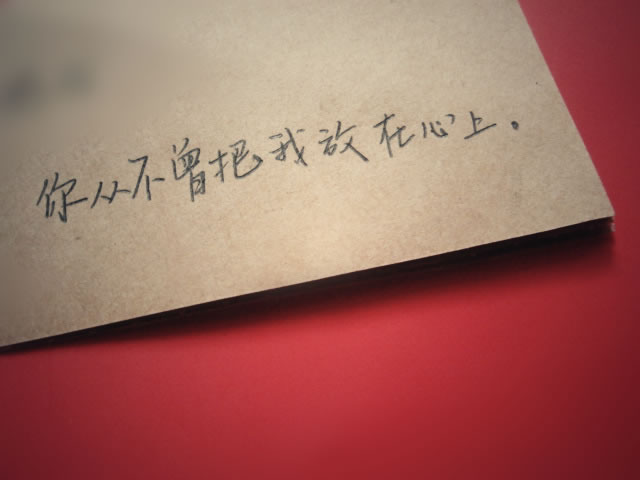 你从不曾把我放在心上。